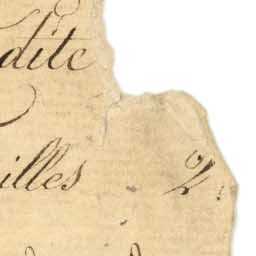 dite
illes 2.